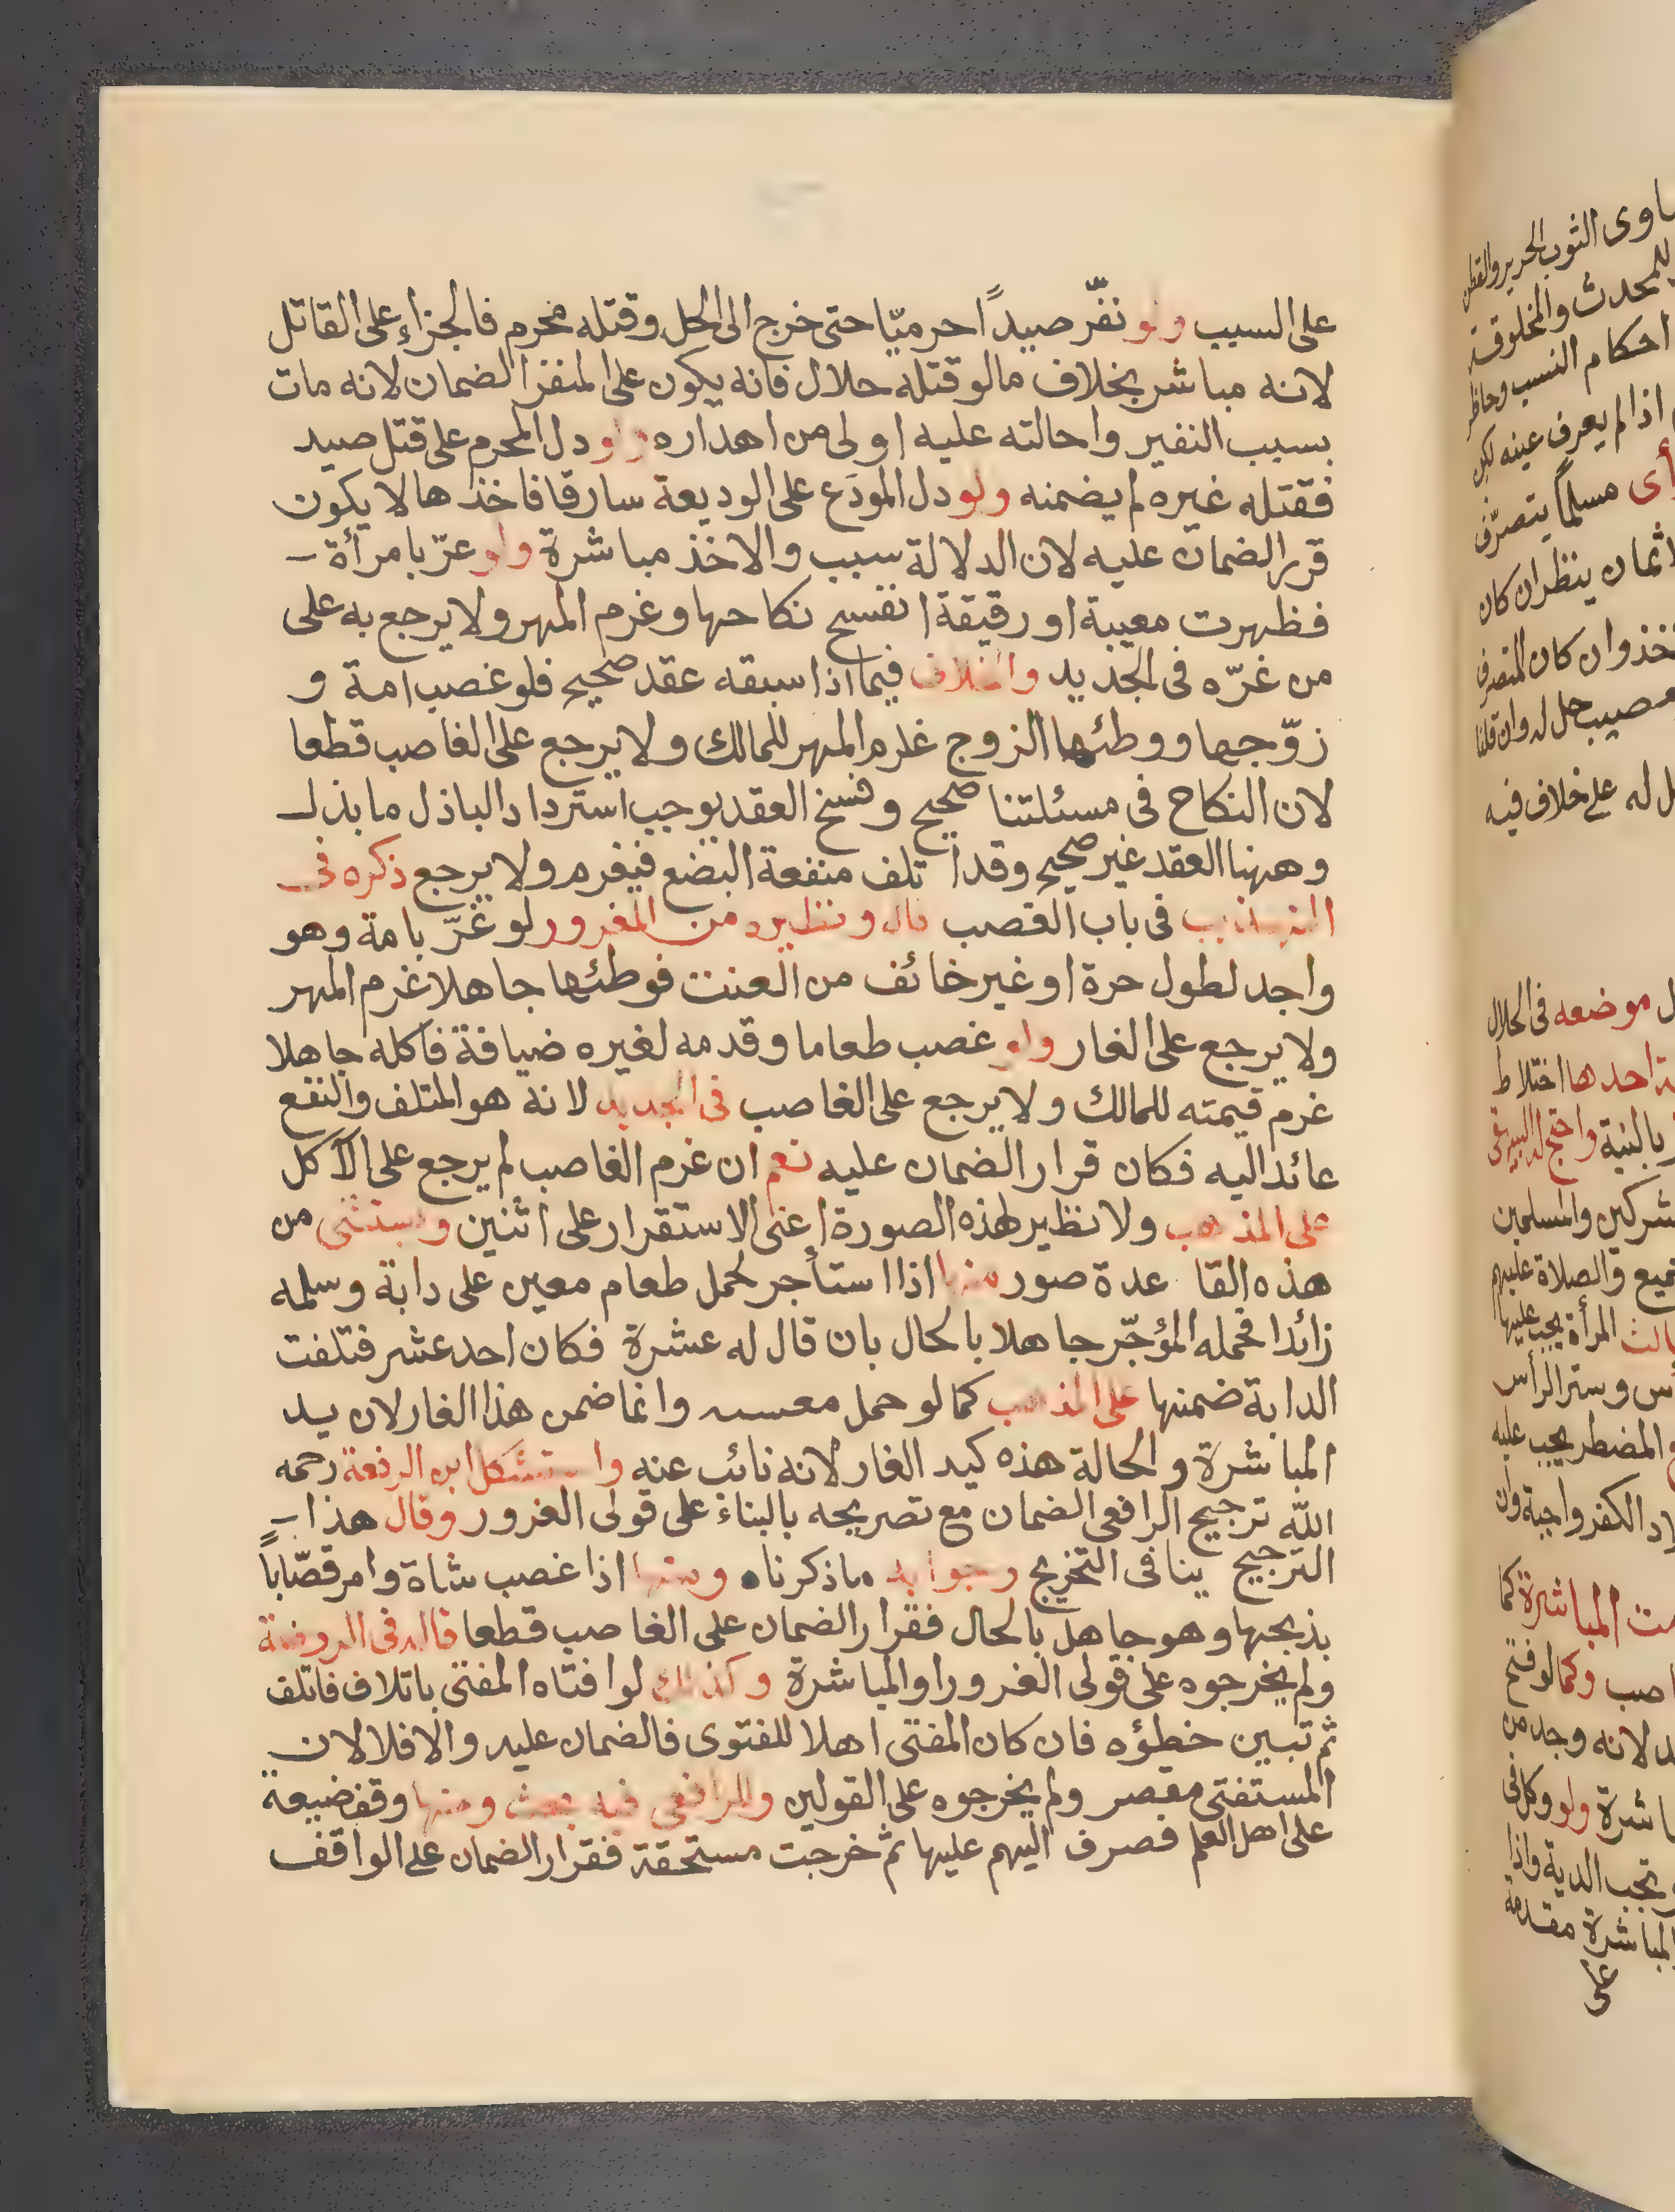 على السبب ولو نفّر صيداً حرميّا حتى خرج الى الحل وقتله محرم فالجزاء على القاتل
لانه مباشر بخلاف مالو قتله حلال فانه يكون على المنفر الضمان لانه مات
بسبب النفير واحالته عليه اولى من اهداره ولو دل المحرم على قتل صيد
فقتله غيره لم يضمنه ولو دل المودَع على الوديعة سارقا فاخذها لا يكون
قرار الضمان عليه لان الدلالة سبب والاخذ مباشرة ولو غرّ بامرأة
فظهرت معيبة او رقيقة انفسخ نكاحها وغرم المهر ولا يرجع به على
من غرّه فى الجديد والخلاف فيما اذا سبقه عقد صحيح فلو غصب امة و
زوّجها ووطئها الزوج غرم المهر للمالك ولا يرجع على الغاصب قطعا
لان النكاح فى مسئلتنا صحيح وفسخ العقد يوجب استرداد الباذل ما بذل
وههنا العقد غير صحيح وقد اتلف منفعة البضع فيغرم ولا يرجع ذكره فى
التهذيب فى باب الغصب قال ونظيره من المغرور لو غرّ بامة وهو
واجد لطول حرة او غير خائف من العنت فوطئها جاهلا غرم المهر
ولا يرجع على الغار ولو غصب طعاما وقدمه لغيره ضيافة فاكله جاهلا
غرم قيمته للمالك ولا يرجع على الغاصب فى الجديد لانه هو المتلف والنفع
عائد اليه فكان قرار الضمان عليه نعم ان غرم الغاصب لم يرجع على الآكل
على المذهب ولا نظير لهذه الصورة اعنى الاستقرار على اثنين ويستثنى من
هذه القاعدة صور منها اذا استأجر لحمل طعام معين على دابة وسلمه
زائدا فحمله المؤجّر جاهلا بالحال بان قال له عشرة فكان احد عشر فتلفت
الدابة ضمنها على المذهب كما لو حمل وانما ضمن هذا الغار لان يد
المباشرة والحالة هذه كيد الغار لانه نائب عنه واستشكل ابن الرفعة رحمه
الله ترجيح الرافعى الضمان مع تصريحه بالبناء على قولى الغرور وقال هذا
الترجيح ينافى التخريج وجوابه ماذكرناه ومنها اذا غصب شاة وامر قصّاباً
بذبحها وهو جاهل بالحال فقرار الضمان على الغاصب قطعا قاله فى الروضة
ولم يخرجوه على قولى الغرور او المباشرة وكذلك لو افتاه المفتى باتلاف فاتلف
ثم تبين خطؤه فان كان المفتى اهلا للفتوى فالضمان عليه والا فلا لان
المستفتى مقصر ولم يخرجوه على القولين وللرافعى فيه بحث ومنها وقف ضيعة
على اهل العلم فصرف اليهم عليها ثم خرجت مستحقة فقرار الضمان على الواقف
ساوى الثوب الحرير والقطن
للمحدث والمخلوقة
احكام النسب وحاظر
اذا لم يعرف عينه لكن
أى مسلماً يتصرّف
اثمان ينظر ان كان
خذ وان كان المتصرف
حل له وان قلنا
ل له على خلاف فيه
ل موضعه فى الحلال
احدها اختلاط
بالنية واحتج له البيهقى
شركين والمسلمين
ميع والصلاة عليهم
الث المرأة يجب عليها
س وستر الرأس
المضطر يجب عليه
لاد الكفر واجبة وان
مت المباشرة كما
اصب وكما لو فتح
لانه وجد من
باشرة ولو وكل فى
تجب الدية واذا
المباشرة مقدمة
على